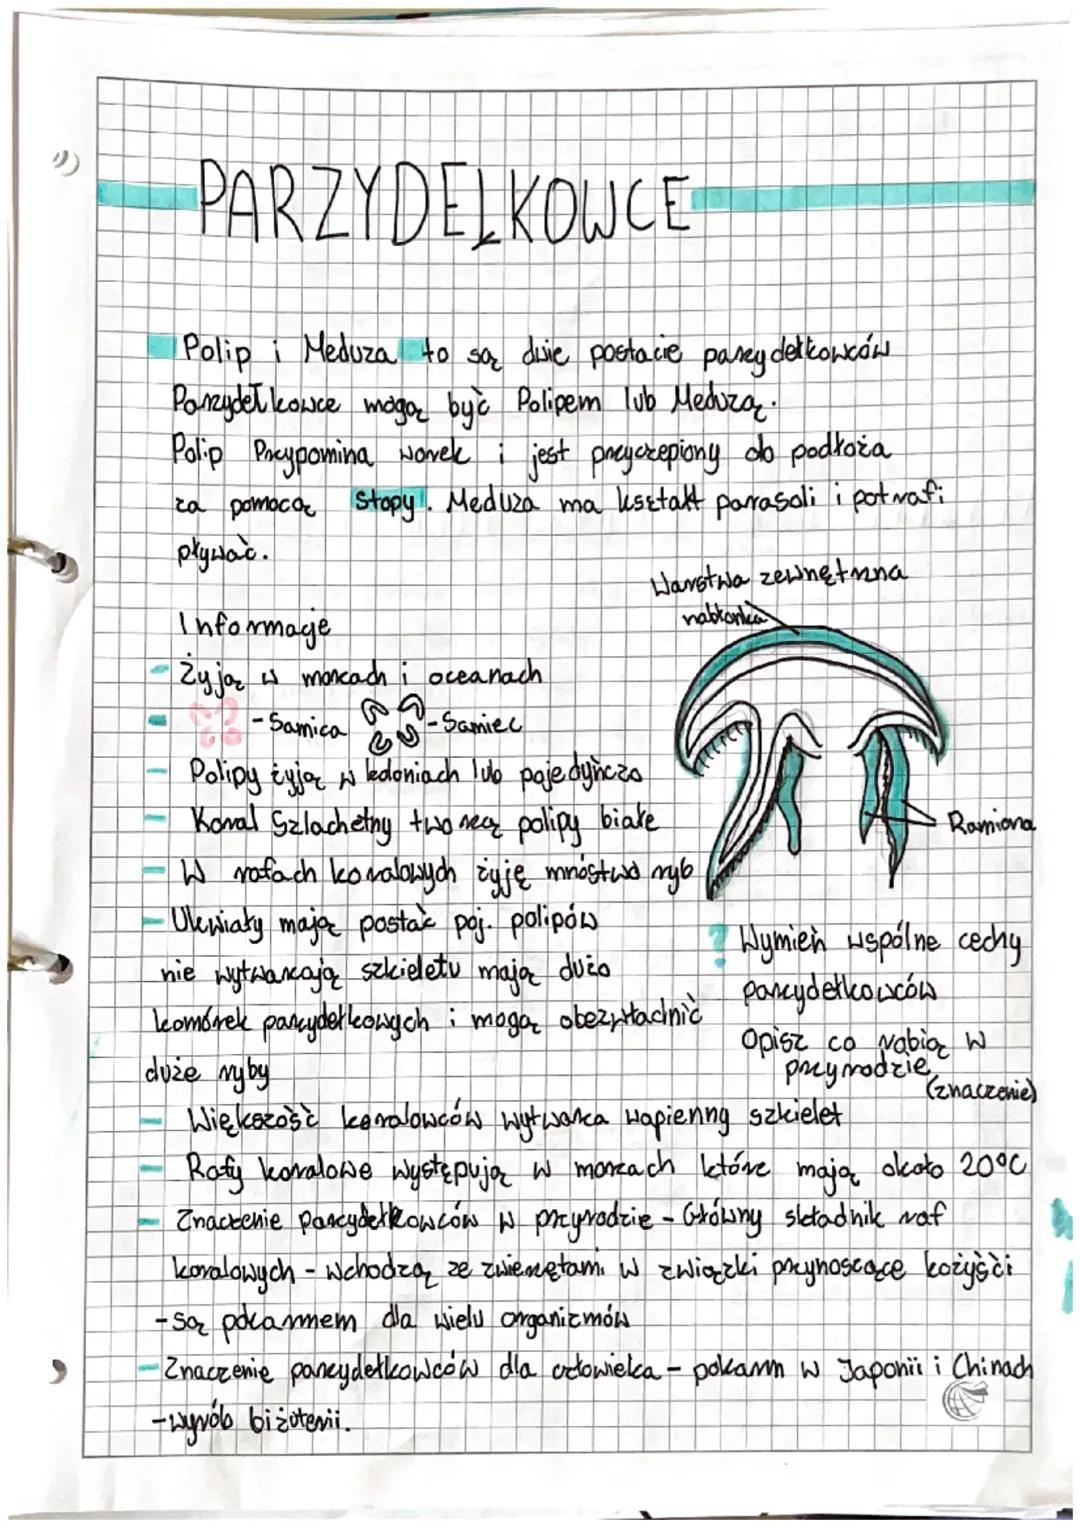 PARZYDEŁKOWCE
Polip i Meduza to są dwie postacie parzydełkowców
Parzydełkowce mogą być Polipem lub Meduzą.
Polip Przypomina worek i jest przyczepiony do podłoża
za pomocą Stopy. Meduza ma kształt parasoli i potrafi
pływać.
Warstwa zewnętrzna
nabłonka
Informacje
- Żyją w morzach i oceanach
- Samica - Samiec
- Polipy żyją w koloniach lub pojedyńczo
- Koral Szlachetny tworzą polipy białe
Ramiona
- W rafach koralowych żyję mnóstwo ryb
- Ukwiały mają postać poj. polipów
nie wytwarzają szkieletu mają dużo
komórek parzydełkowych i mogą obezwładnić
duże ryby
? Wymień wspólne cechy
parzydełkowców
Opisz co robią w
przyrodzie
(znaczenie)
- Większość koralowców wytwarza wapienny szkielet
- Rafy koralowe występują w morzach które mają około 20°C
- Znaczenie parzydełkowców w przyrodzie - Główny składnik raf
koralowych - wchodzą ze zwierzętami w związki przynoszące kożyści
- Są pokarmem dla wielu organizmów
- Znaczenie parzydełkowców dla człowieka - pokarm w Japonii i Chinach
- wyrób biżuterii.